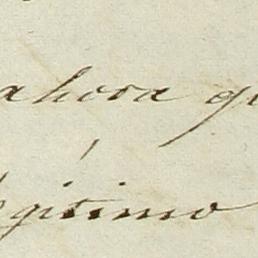 ahora qu
legitimo